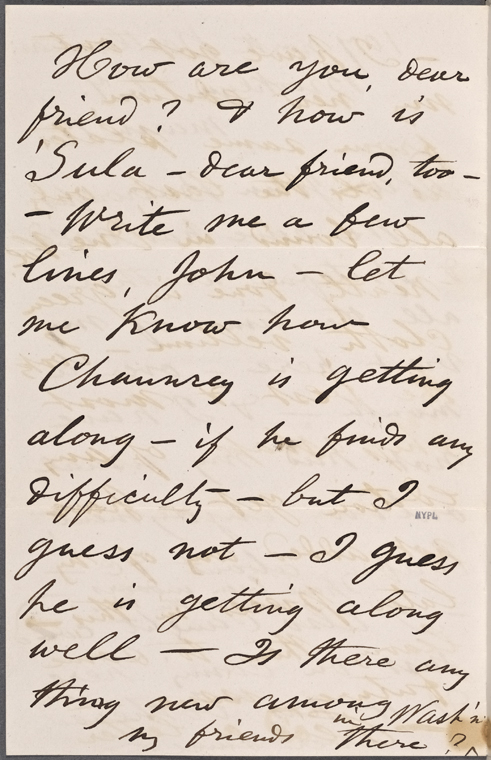 How are you, dear
friend? & how is
'Sula – dear friend, too –
– Write me a few
lines, John – let
me know how
Chauncey is getting
along – if he finds any
difficulty – but I
NYPL
guess not – I guess
he is getting along
well – Is there any
thing new among
my friends in Wash'n there?